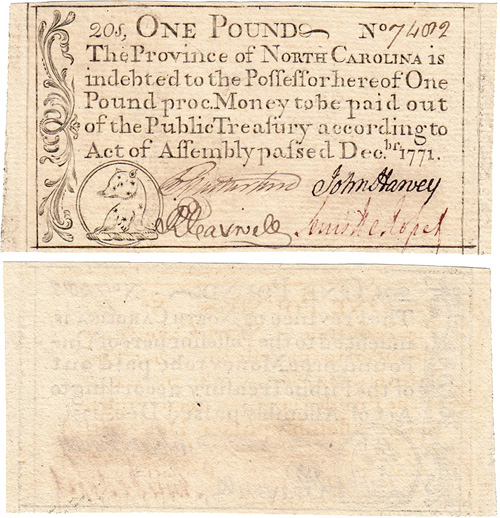 20s, ONE POUND No 7482
The Province of NORTH CAROLINA is
indebted to the Poſſeſſor hereof One
Pound proc. Money to be paid out
of the Public Treaſury according to
Act of Aſſembly paſſed Dec.br 1771.
John Harvey